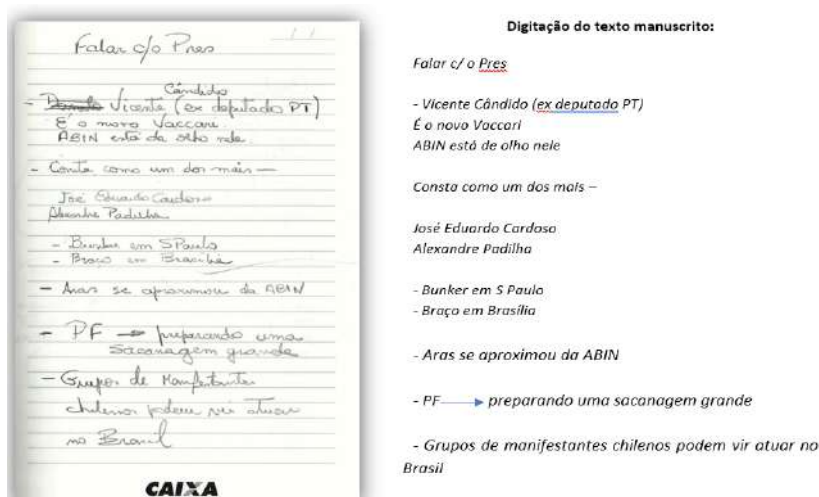 Falar c/o Pres
Cândido
- Vicente (ex deputado PT)
É o novo Vaccari
ABIN está de olho nele.
- Consta como um dos mais —
José Eduardo Cardoso
Alexandre Padilha
- Bunker em S Paulo
- Braço em Brasília
- Aras se aproximou da ABIN
- PF → preparando uma
sacanagem grande
- Grupos de Manifestantes
chilenos podem vir atuar
no Brasil
CAIXA
Digitação do texto manuscrito:
Falar c/ o Pres
- Vicente Cândido (ex deputado PT)
É o novo Vaccari
ABIN está de olho nele
Consta como um dos mais –
José Eduardo Cardoso
Alexandre Padilha
- Bunker em S Paulo
- Braço em Brasília
- Aras se aproximou da ABIN
- PF → preparando uma sacanagem grande
- Grupos de manifestantes chilenos podem vir atuar no
Brasil